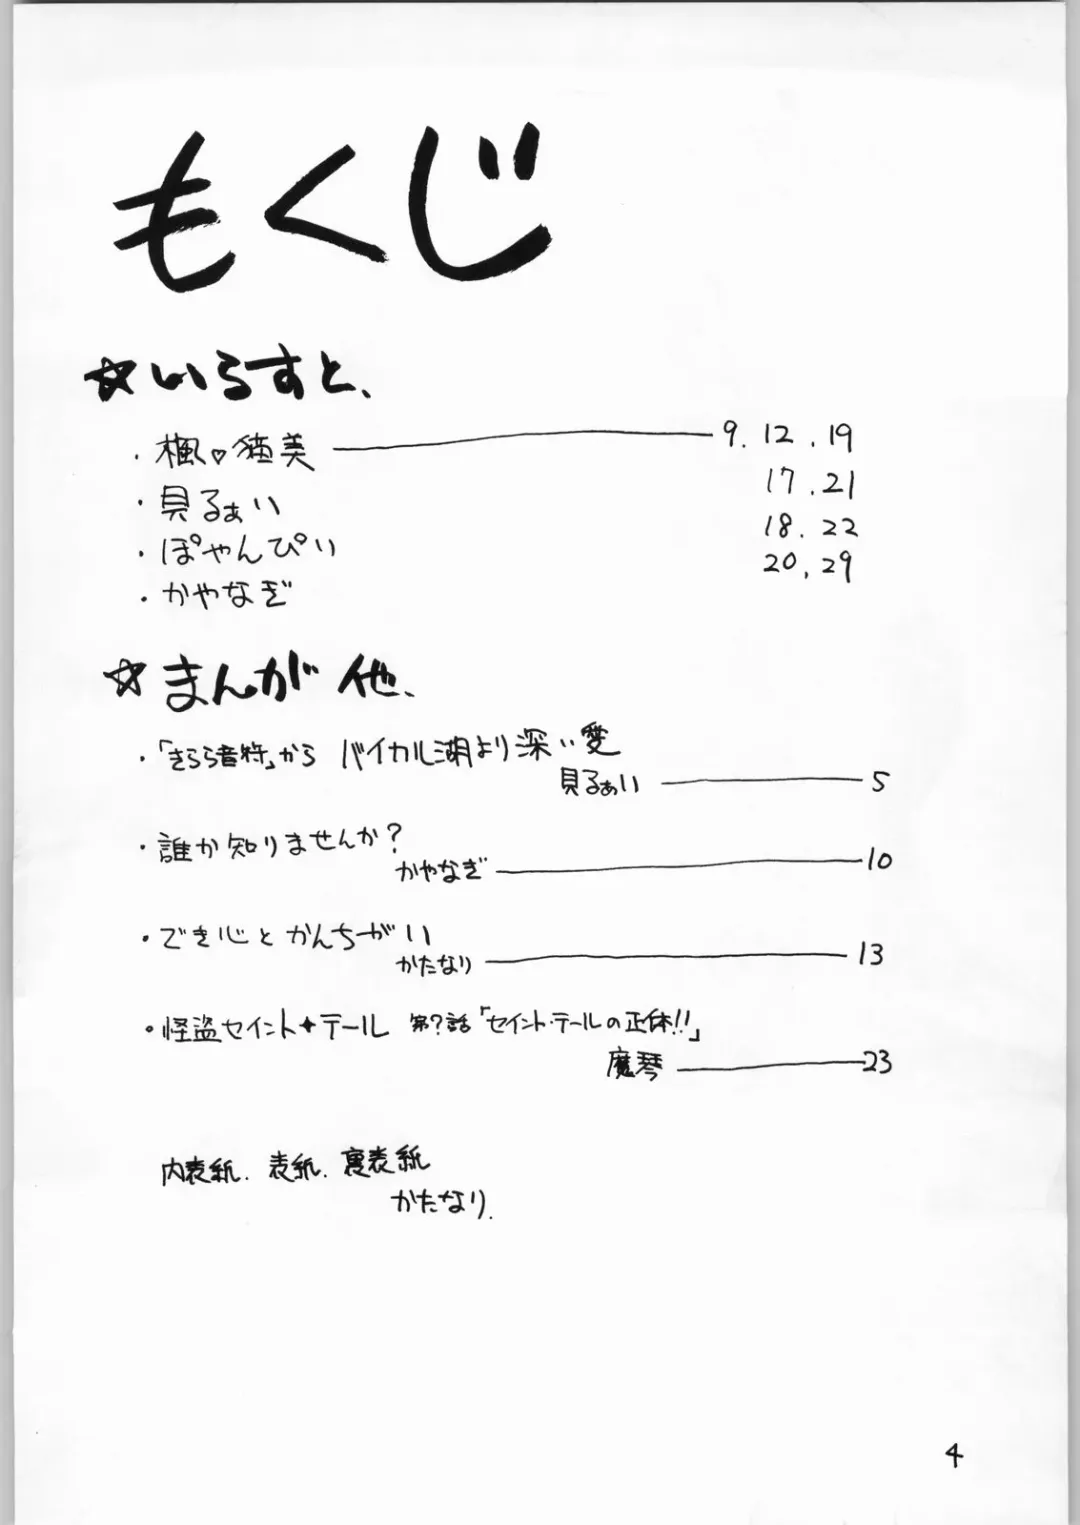 もくじ
☆いらすと、
・楓♡猪美 9. 12. 19
・貝るぁい 17. 21
・ぽやんぴい 18. 22
・かやなぎ 20. 29
☆まんが他、
・「きらら音符」から バイカル湖より深い愛
貝るぁい 5
・誰か知りませんか?
かやなぎ 10
・でき心とかんちがい
かたなり 13
・怪盗セイント✦テール 第?話「セイント・テールの正体!!」
魔琴 23
内表紙. 表紙. 裏表紙
かたなり.
4